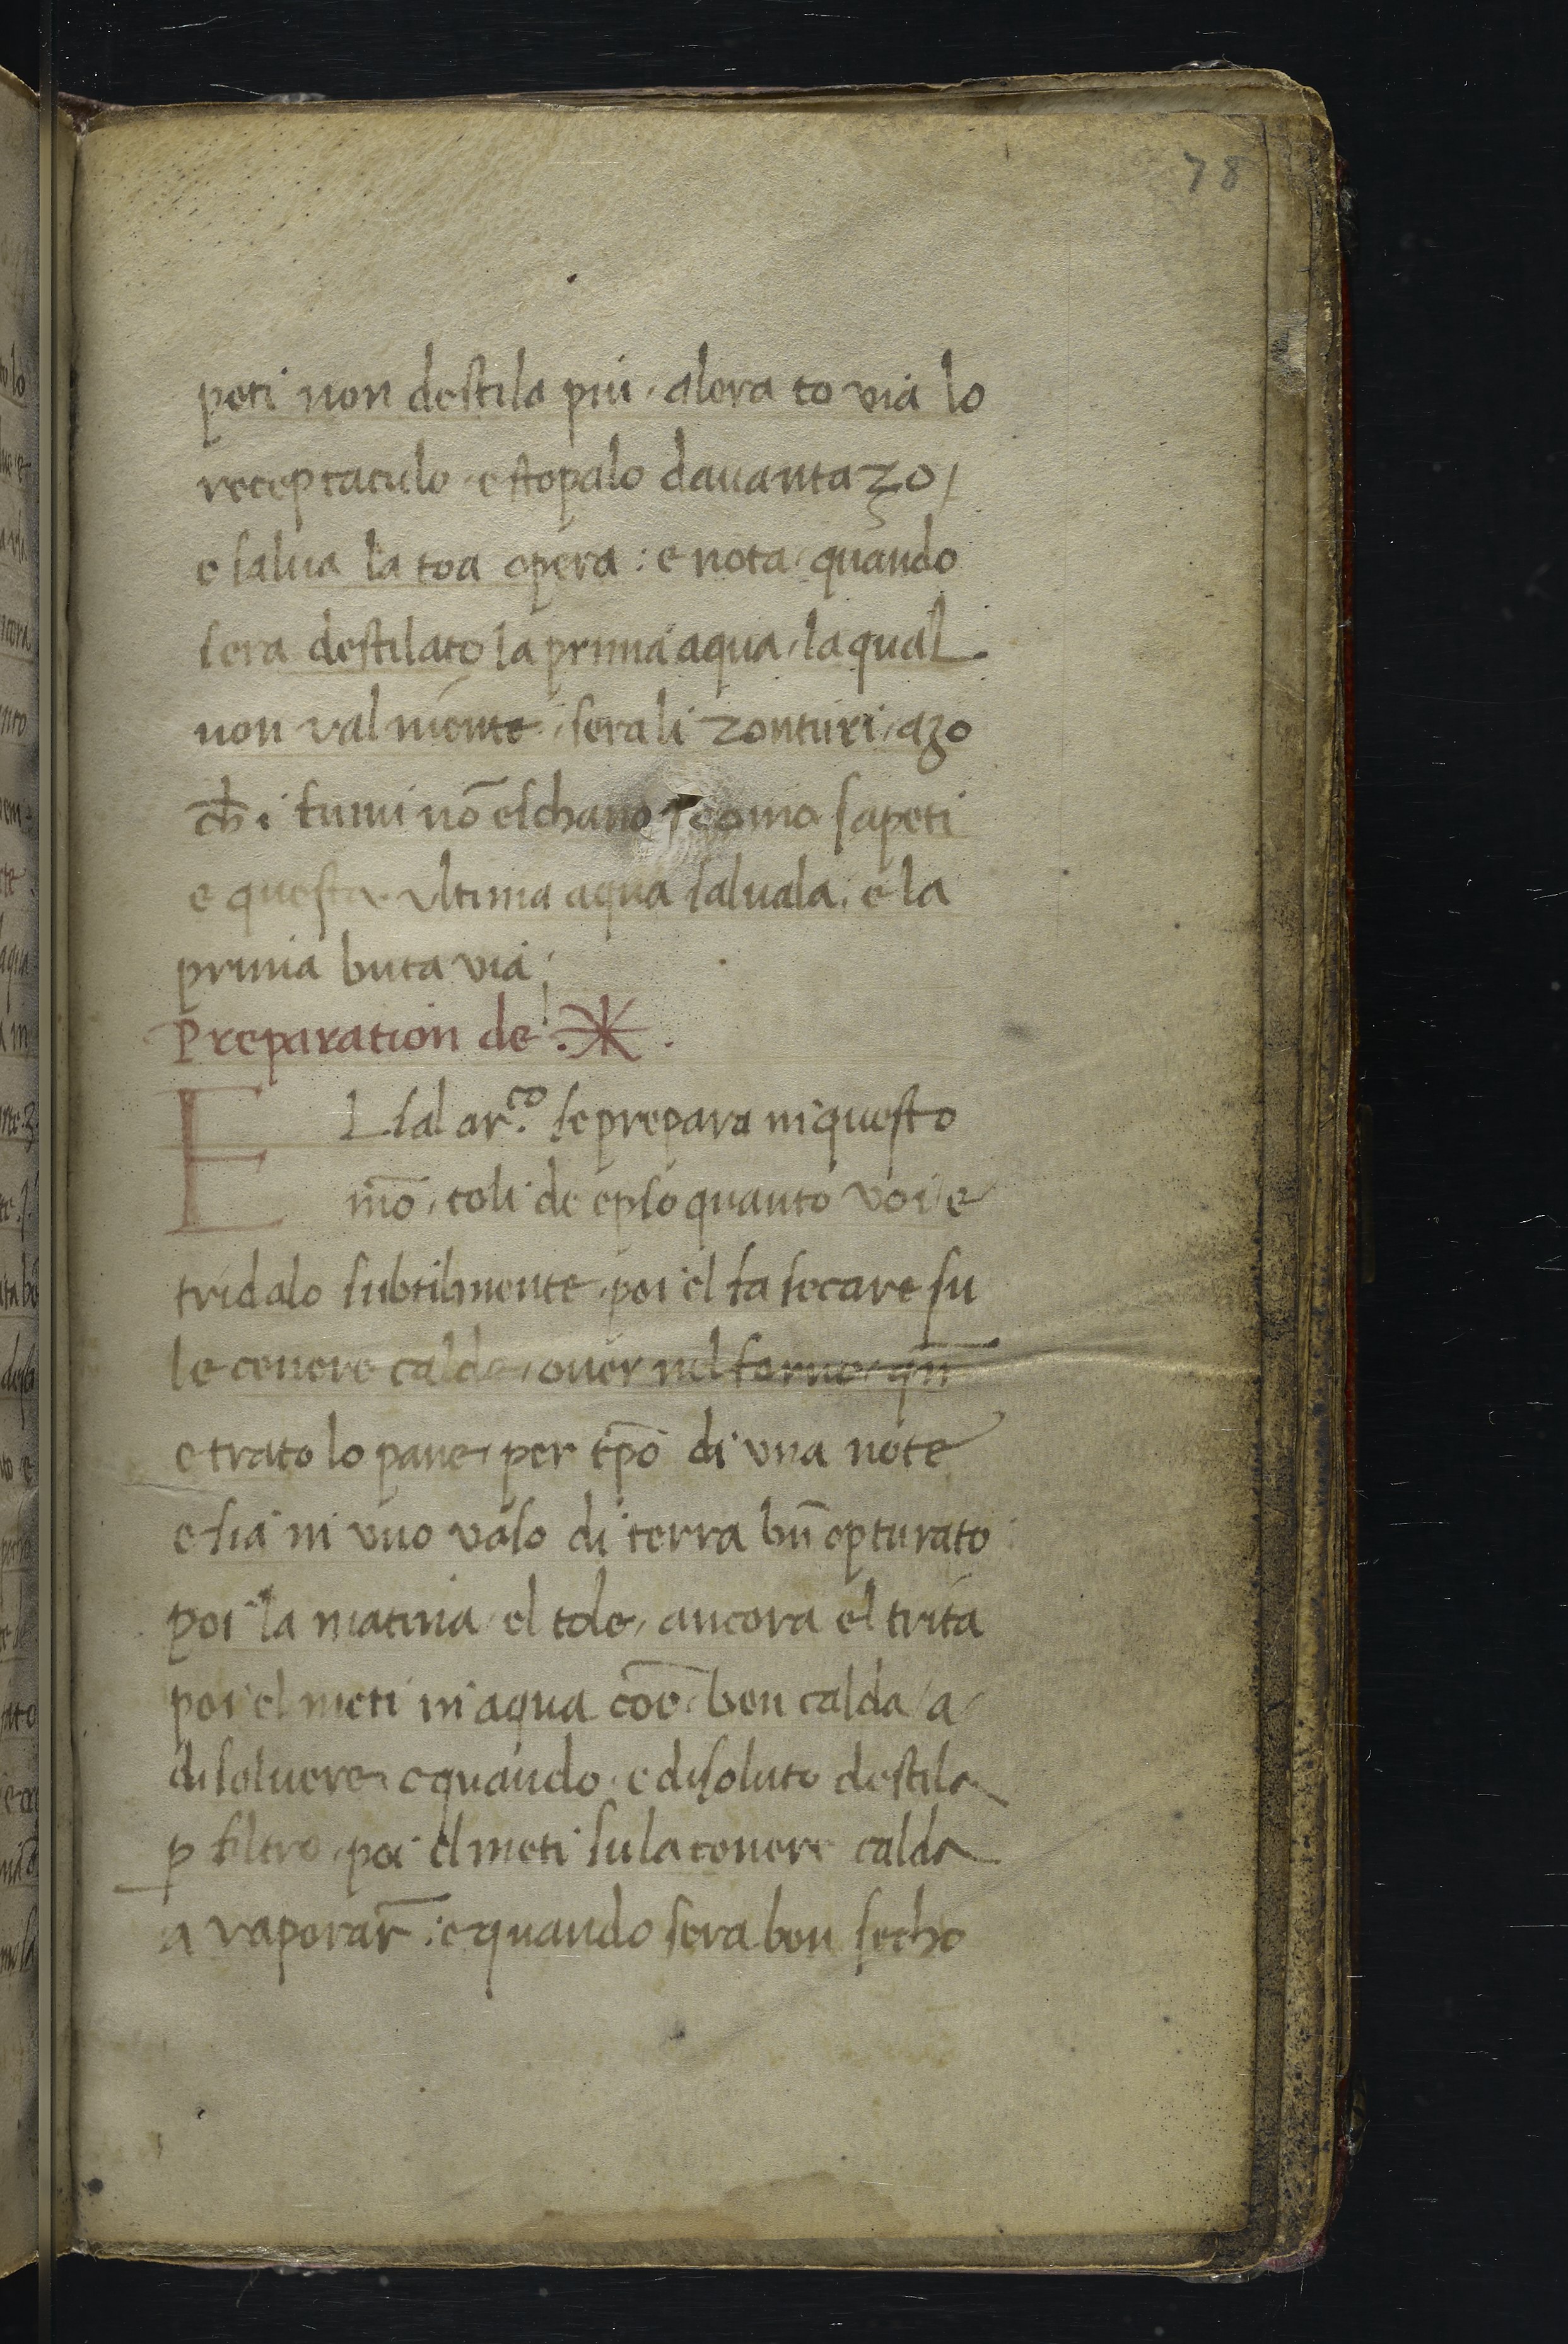 78
peti non destila piu, alora to via lo
receptaculo e stopalo davantazo/
e salua la toa opera: e nota, quando
sera destilato la prima aqua, la qual
non val niente, sera li zonturi, azo
ch̄ i fumi nō eschano, como sapeti
e questa ultima aqua saluala, e la
prima buta via;
Preparation de .
EL sal ar.co se prepara in questo
mō, toli de epso quanto voi e
tridalo subtilmente, poi el fa secare su
le cenere calde, over nel forno, qn̄
e trato lo pane, per tp̄o di una note
e sia in uno vaso di terra bn̄ opturato
poi la matina el tole, ancora el trita
poi el meti in aqua cōe, ben calda, a
disoluere, e quando e disoluto destila
p filtro, poi el meti su la cenere calda
a vaporar̄: e quando sera ben secho